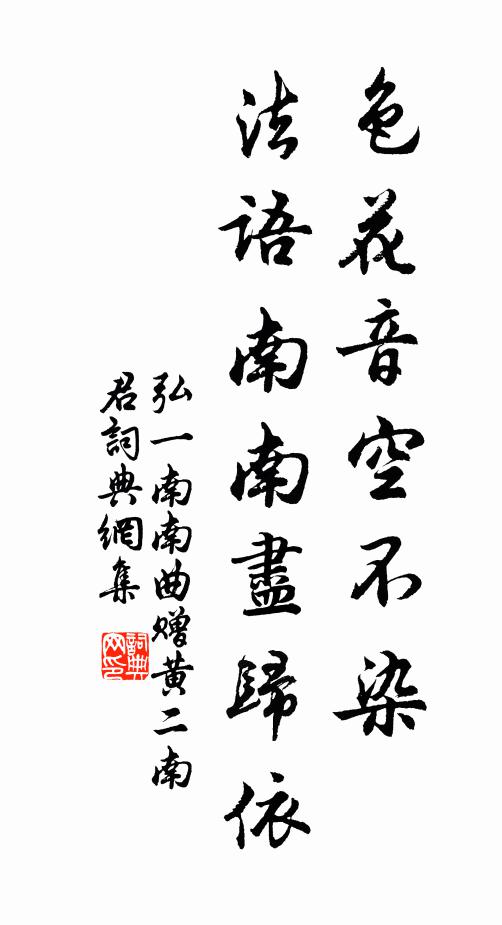 色花音空不染
法語南南盡歸依
弘一南南曲贈黄二南
君詞典網集
詞典
网印